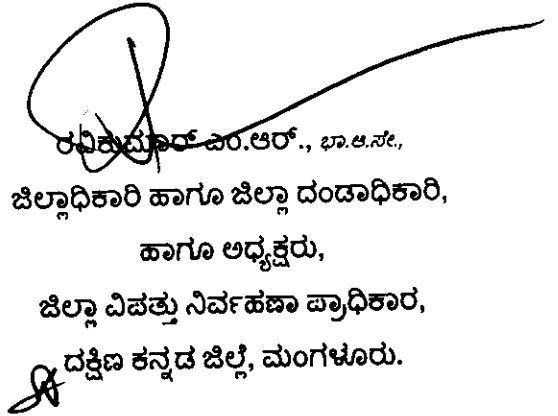 ರವಿಕುಮಾರ್ ಎಂ.ಆರ್., ಭಾ.ಆ.ಸೇ.,
ಜಿಲ್ಲಾಧಿಕಾರಿ ಹಾಗೂ ಜಿಲ್ಲಾ ದಂಡಾಧಿಕಾರಿ,
ಹಾಗೂ ಅಧ್ಯಕ್ಷರು,
ಜಿಲ್ಲಾ ವಿಪತ್ತು ನಿರ್ವಹಣಾ ಪ್ರಾಧಿಕಾರ,
ದಕ್ಷಿಣ ಕನ್ನಡ ಜಿಲ್ಲೆ, ಮಂಗಳೂರು.